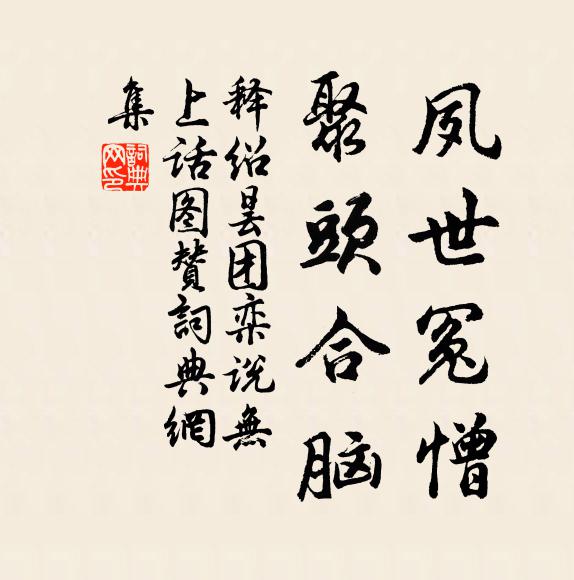 夙世冤憎
聚頭合脑
释绍昙团栾说無
上话图贊詞典網
集
詞典网印